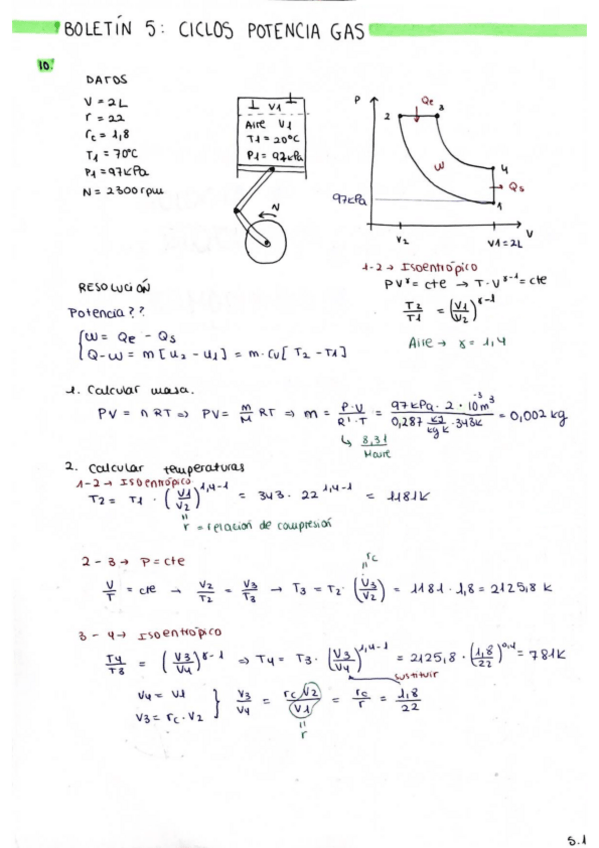 BOLETÍN 5: CICLOS POTENCIA GAS
10.
DATOS
V = 2L
r = 22
rc = 1,8
T1 = 70ºC
P1 = 97kPa
N = 2300 rpm
V1
Aire V1
T1 = 20ºC
P1 = 97kPa
N
P
Qe
2
3
W
4
Qs
97kPa
1
V
V2
V1 = 2L
1-2 → Isoentrópico
PV^γ = cte → T·V^γ-1 = cte
T2/T1 = (V1/V2)^γ-1
Aire → γ = 1,4
RESOLUCIÓN
Potencia??
W = Qe - Qs
Q-W = m[u2 - u1] = m·cv[T2 - T1]
1. Calcular masa.
PV = nRT => PV = m/M RT => m = P·V/R'·T = 97kPa·2·10^-3 m^3/0,287 kJ/kg K · 343K = 0,002 kg
↳ 8,31/Maire
2. Calcular temperaturas
1-2 → Isoentrópico
T2 = T1 · (V1/V2)^1,4-1 = 343 · 22^1,4-1 = 1181K
r = relación de compresión
2-3 → P = cte
rc
V/T = cte → V2/T2 = V3/T3 → T3 = T2·(V3/V2) = 1181·1,8 = 2125,8 K
3-4 → Isoentrópico
T4/T3 = (V3/V4)^γ-1 => T4 = T3·(V3/V4)^1,4-1 = 2125,8·(1,8/22)^0,4 = 781K
sustituir
V4 = V1
V3 = rc·V2
V3/V4 = rc·V2/V1 = rc/r = 1,8/22
r
5.1